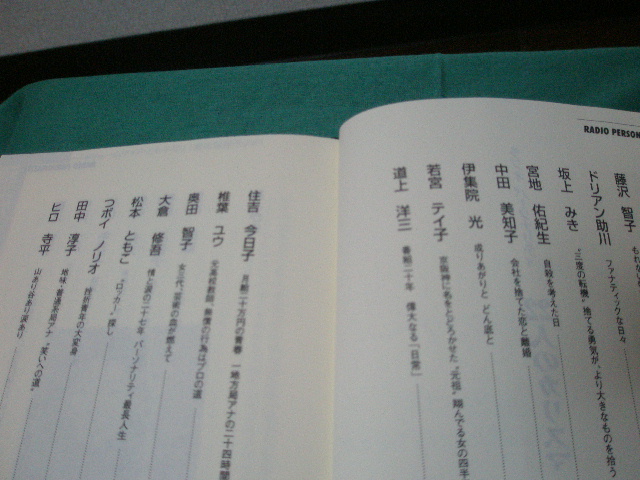 RADIO PERSON
藤沢 智子
ドリアン助川 ファナティックな日々
坂上 みき "三度の転機" 捨てる勇気が、より大きなものを拾う
宮地 佑紀生 自殺を考えた日
中田 美知子 会社を捨てた恋と離婚
伊集院 光 成りあがりと どん底と
若宮 テイ子 京阪神に名をとどろかせた"元祖"翔んでる女の四半
道上 洋三 番組二十年 偉大なる「日常」
住吉 今日子 月給二十万円の青春 一地方局アナの二十四時間
椎葉 ユウ 元高校教師、無償の行為はプロの道
奥田 智子 女三代、芸術の血が燃えて
大倉 修吾 情と涙の二十七年 パーソナリティ最長人生
松本 ともこ "ロッカー"探し
つボイ ノリオ 挫折青年の大変身
田中 淳子 地味・普通希望アナ、"笑いへの道"
ヒロ 寺平 山あり谷あり涙あり